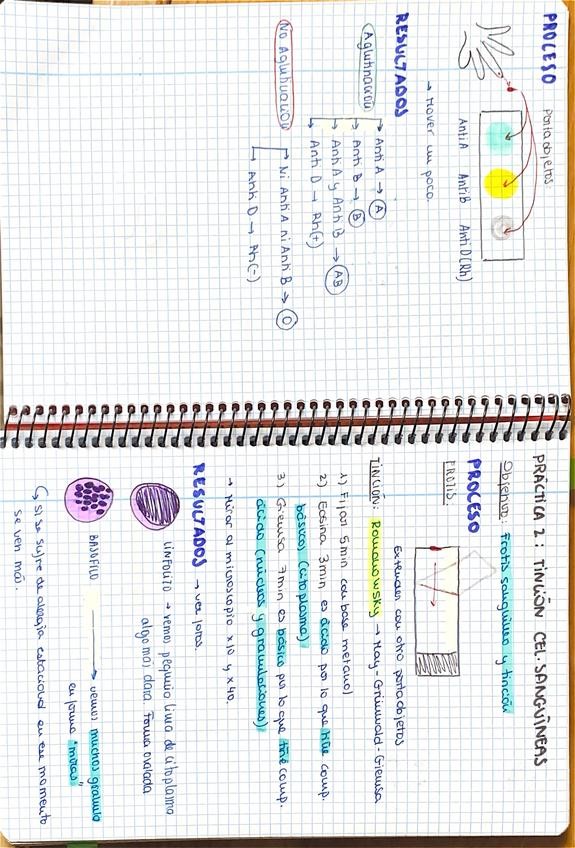 PROCESO
Portaobjetos:
Anti A Anti B Anti D (Rh)
→ Mover un poco.
RESULTADOS
Aglutinación
Anti A → A
Anti B → B
Anti A y Anti B → AB
Anti D → Rh(+)
No Aglutinación
Ni Anti A ni Anti B → O
Anti D → Rh(-)
PRÁCTICA 2: TINCIÓN CEL. SANGUÍNEAS
Objetivo: Frotis sanguíneo y tinción
PROCESO
FROTIS:
Extender con otro portaobjetos
TINCIÓN: Romanowsky → May-Grünwald-Giemsa
1) Fijar 5min con base metanol
2) Eosina 3min es ácido por lo que tiñe comp.
básicos (citoplasma)
3) Giemsa 7min es básico por lo que tiñe comp.
ácido (núcleos y granulaciones)
→ Mirar al microscopio x10 y x40.
RESULTADOS → ver fotos.
LINFOCITO → vemos pequeña línea de citoplasma
algo más clara. Forma ovalada
BASÓFILO → vemos muchos granulo
en forma "moras"
↳ Si se sufre de alergia estacional en ese momento
se ven más.